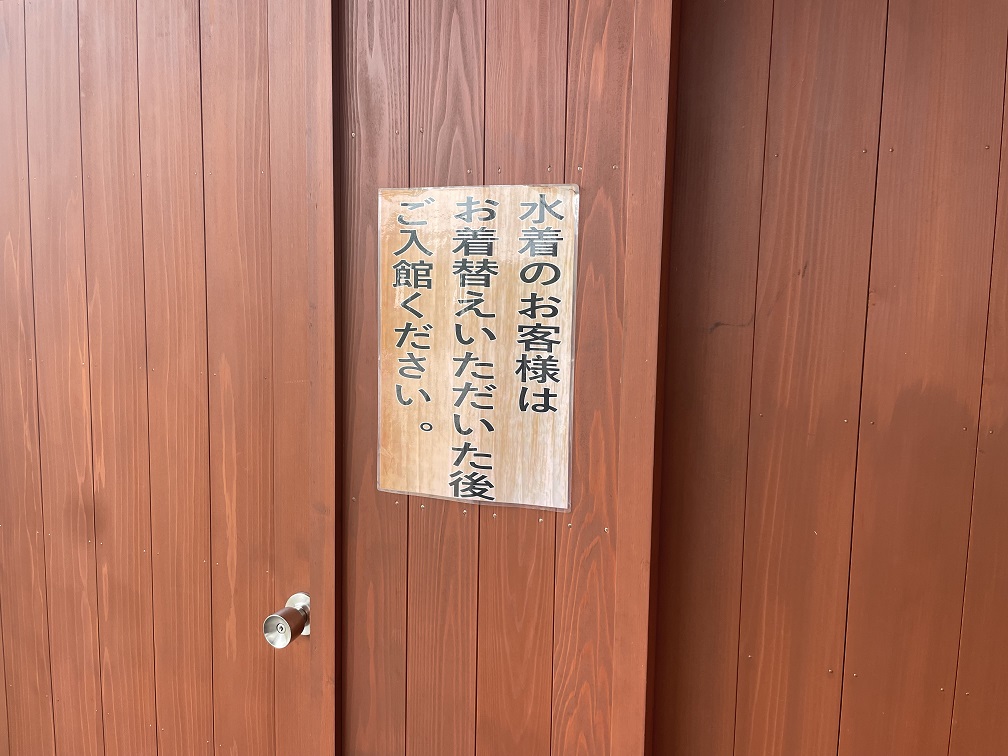 水着のお客様は
お着替えいただいた後
ご入館ください。